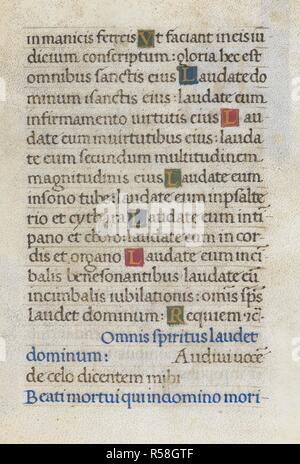 in manicis ferreis Vt faciant in eis iu
dicium conscriptum: gloria hec est
omnibus sanctis eius Laudate do
minum i sanctis eius: laudate eum
in firmamento virtutis eius Lau
date eum in virtutibus eius: lauda
te eum secundum multitudinem
magnitudinis eius Laudate eum
in sono tube: laudate eum in psalte
rio et cythara Laudate eum in ti
pano et choro: laudate eum in cor
dis et organo Laudate eum in ci
balis benesonantibus: laudate eu
in cimbalis iubilationis: omis sps
laudet dominum: Requiem
Omnis spiritus laudet
dominum: Audiui uoce
de celo dicentem mihi
Beati mortui qui in domino mori-
alamy
Image ID: R58GTF
www.alamy.com